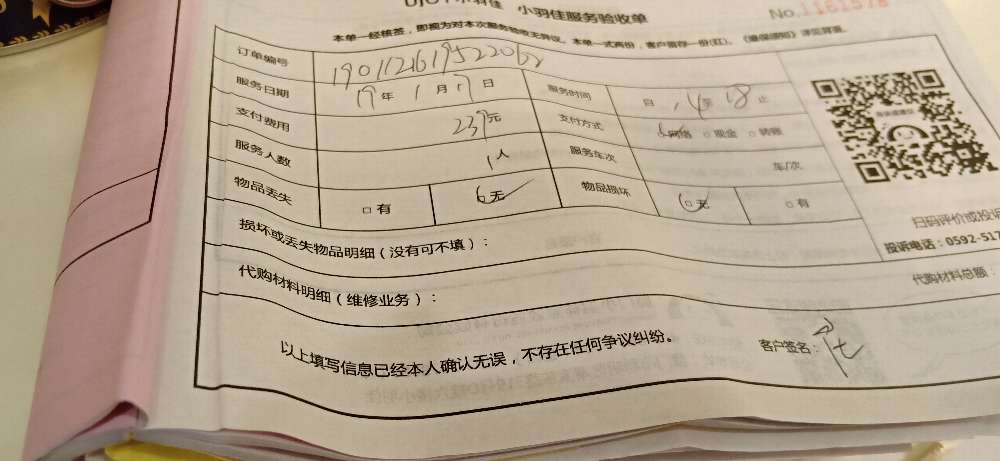 小羽佳 小羽佳服务验收单 No.1161578
本单一经核签，即视为对本次服务验收无异议。本单一式两份，客户留存一份(红)。
订单编号
服务日期 19年1月17日 服务时间 自14至18止
支付费用 239元 支付方式 网络 □现金 □转账
服务人数 1人 服务车次 车/次
物品丢失 □有 无 物品损坏 □无 □有
扫码评价或投诉
损坏或丢失物品明细（没有可不填）：
投诉电话：0592-517
代购材料明细（维修业务）： 代购材料总额：
以上填写信息已经本人确认无误，不存在任何争议纠纷。 客户签名：